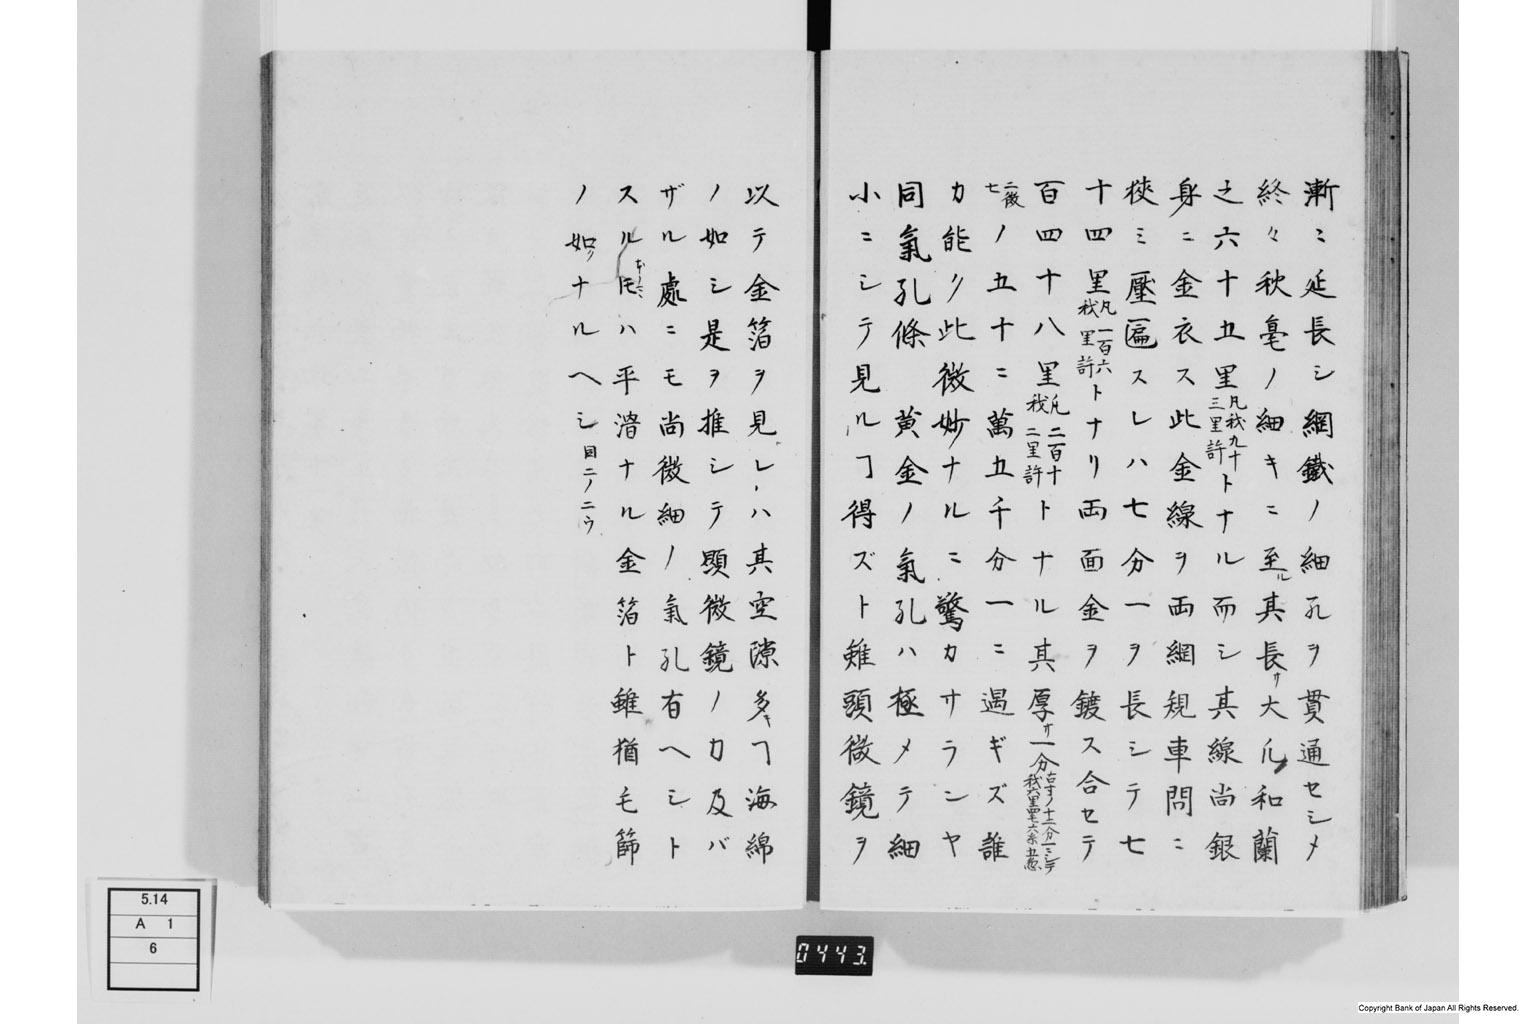 漸ニ延長シ網鐵ノ細孔ヲ貫通セシメ
終々秋毫ノ細キニ至ル其長サ大凡和蘭
之六十五里凡我九十三里許トナル而シ其線尚銀
身ニ金衣ス此金線ヲ両網規車間ニ
狹ミ壓匾スレハ七分一ヲ長シテ七
十四里凡一百六我里許トナリ両面金ヲ鍍ス合セテ
百四十八里凡二百十我二里許トナル其厚サ一分
二微七ノ五十ニ萬五千分一ニ過ギズ誰
カ能ク此微妙ナルニ驚カサランヤ
同氣孔條 黄金ノ氣孔ハ極メテ細
小ニシテ見ルヿ得ズト雖頭微鏡ヲ
以テ金箔ヲ見レハ其空隙多キヿ海綿
ノ如シ是ヲ推シテ顕微鏡ノ力及バ
ザル處ニモ尚微細ノ氣孔有ヘシト
スル モハ平滑ナル金箔ト雖猶毛篩
ノ如クナルヘシ 目二ノ二ウ
5.14
A 1
6
0443.
Copyright Bank of Japan All Rights Reserved.